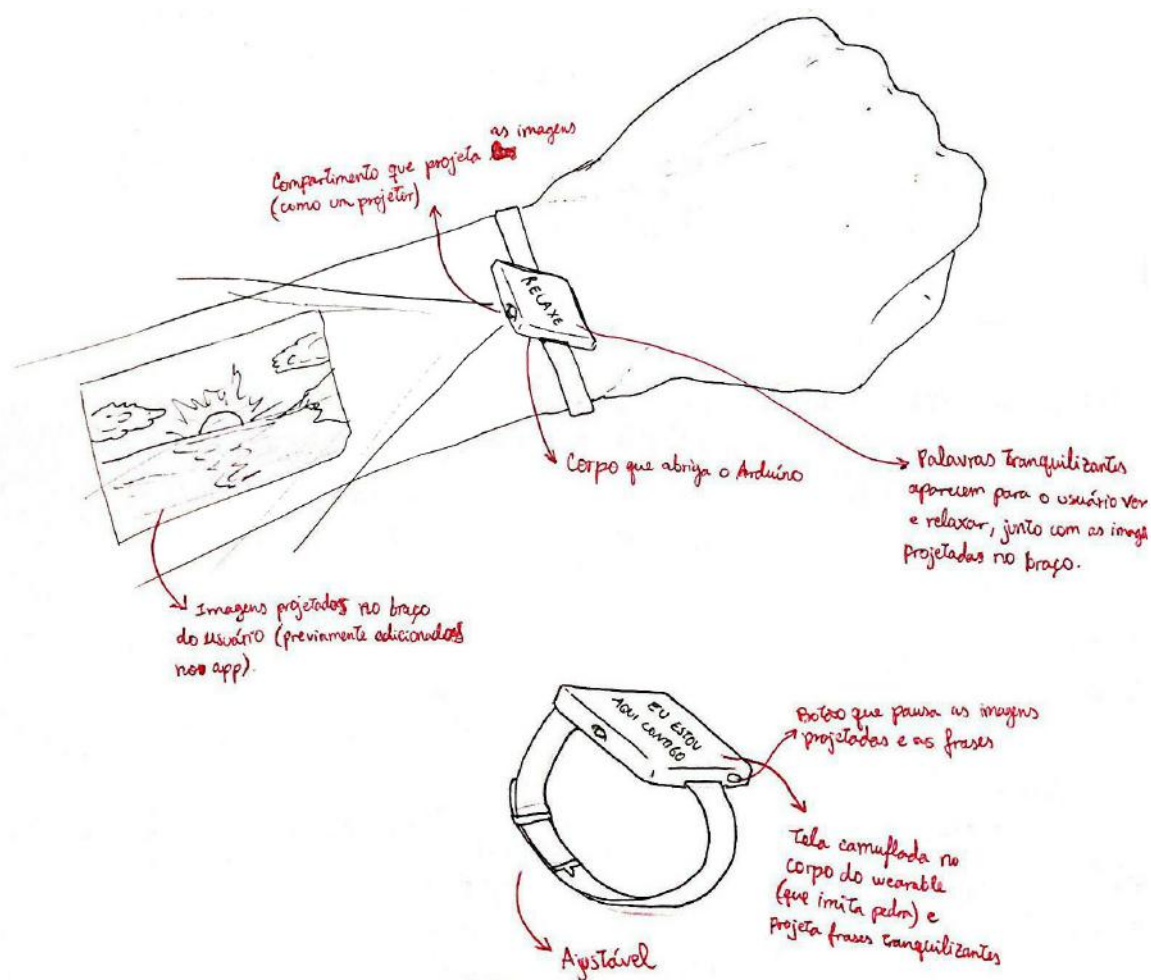 as imagens
Compartimento que projeta
(como um projetor)
RELAXE
Corpo que abriga o Arduino
Palavras tranquilizantes
aparecem para o usuário ver
e relaxar, junto com as imag
projetadas no braço.
Imagens projetadas no braço
do usuário (previamente adicionadas
no app).
EU ESTOU
AQUI CONTIGO
Botão que pausa as imagens
projetadas e as frases
Tela camuflada no
corpo do wearable
(que imita pedra) e
projeta frases tranquilizantes
Ajustável